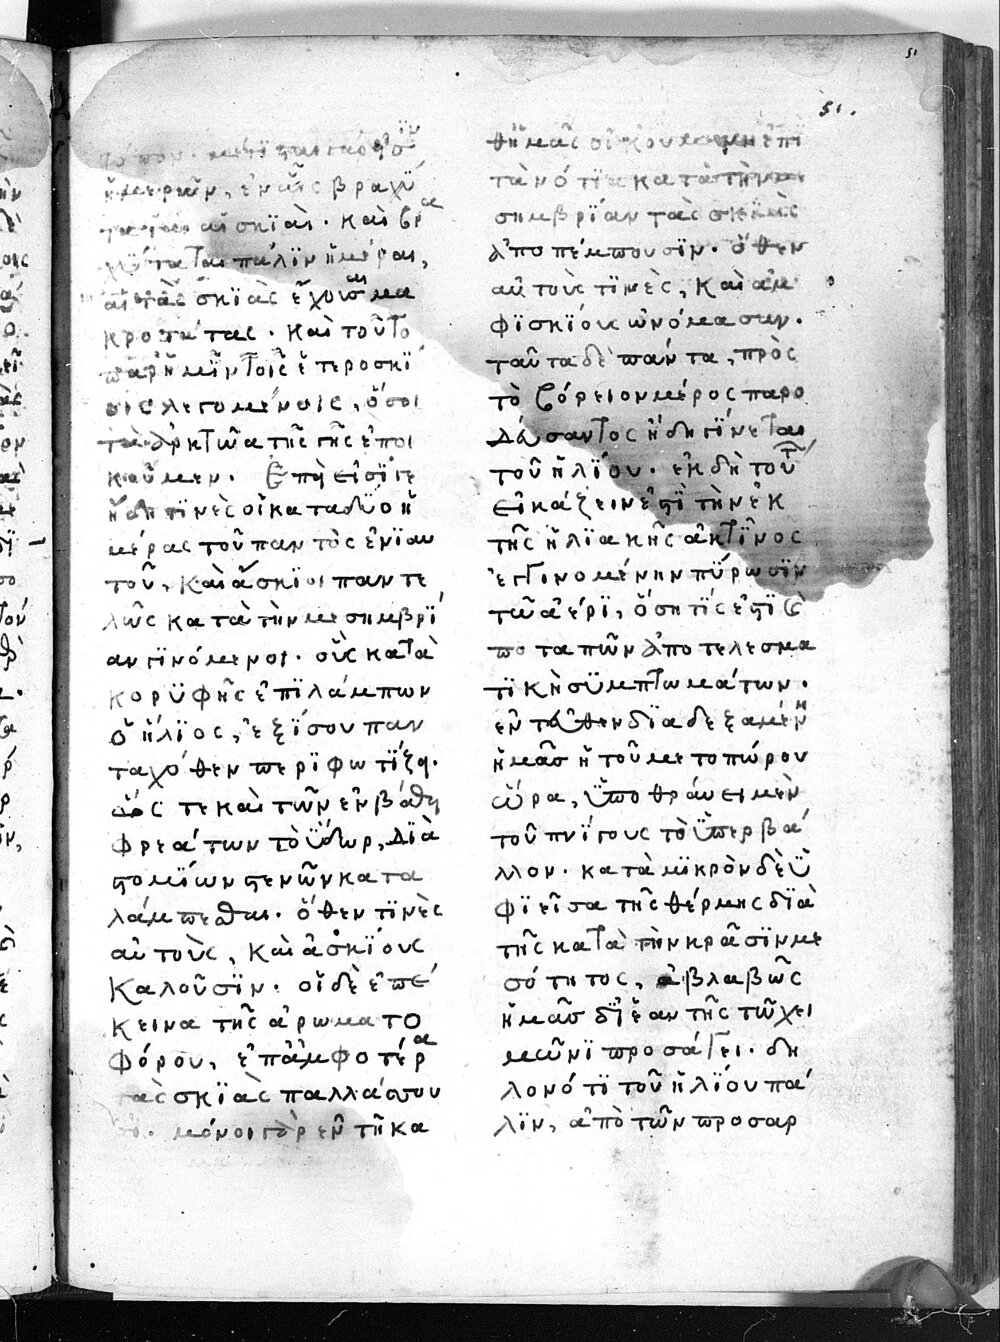 51
51.
τόπον.
ἡμερῶν, ἐν αἷς βραχύ
αἱ σκϊαὶ. καὶ βρα
χύταται πάλϊν ἡμέραι,
αἱ τὰς σκϊὰς ἔχουσαι μα
κροτάτας. καὶ τοῦτο
παρ ἡμῖν τοῖς ἑτεροσκϊ
οις λεγομένοις, ὅσοι
τὰ ἀρκτῶα τῆς γῆς ἐποι
κοῦμεν. Ἐπεὶ εἰσί γε
οἱ κατα δύο ἡ
μέρας τοῦ παντὸς ἐνϊαυ
τοῦ, καὶ ἄσκϊοι παντε
λῶς κατὰ τὴν μεσημβρϊ
αν γϊνόμενοι. οὓς κατὰ
κορϋφῆς ἐπϊλάμπων
ὁ ἥλϊος, ἐξίσου παν
ταχόθεν περϊφωτίζει.
ὥς τε καὶ τῶν ἐν βάθει
φρεάτων τὸ ὕδωρ, δϊὰ
στομΐων στενῶν κατα
λάμπεσθαι. ὅθεν τϊνὲς
αὐτοὺς, καὶ ἀσκΐους
καλοῦσϊν. οἱ δὲ ἐπέ
κεινα τῆς ἀρωματο
φόρου, ἐπ ἀμφοτέρα
τὰς σκϊὰς παλλάσσου
σϊ. μόνοι γὰρ ἐν τῆ κα
θ ἡμᾶς οἰκουμένη ἐπὶ
τὰ νότϊα κατὰ τὴν με
σημβρΐαν τὰς σκϊὰς
ἀποπέμπουσϊν. ὅθεν
αὐτοὺς τϊνὲς, καὶ ἀμ
φϊσκΐους ὠνόμασαν.
ταῦτα δὲ πάντα, πρὸς
τὸ βόρειον μέρος παρο
δεύσαντος ἤδη γίνεται
τοῦ ἡλΐου. ἐκ δὴ τούτ
εἰκάζειν ἐστϊ τὴν ἐκ
τῆς ἡλϊακῆς ἀκτῖνος
ἐγγϊνομένην πύρωσϊν
τῶ ἀέρϊ, ὅση τΐς ἐστϊ
πο τῶν ἀποτελεσμα
τϊκὴ συμπτωμάτων.
ἐντεῦθεν δϊαδεξαμένη
ἡμᾶσ ἡ τοῦ μετοπώρου
ὥρα, ὑποθραύει μὲν
τοῦ πνΐγους τὸ ὑπερβά
λλον. κατὰ μϊκρὸν δὲ ὑ
φϊεῖσα τῆς θέρμης δϊὰ
τῆς κατὰ τὴν κρᾶσϊν με
σότητος, ἀβλαβῶς
ἡμᾶσ δϊ ἑαυτῆς τῶ χει
μῶνϊ προσάγει. δη
λονότϊ τοῦ ἡλΐου πά
λϊν, ἀπὸ τῶν προσαρ